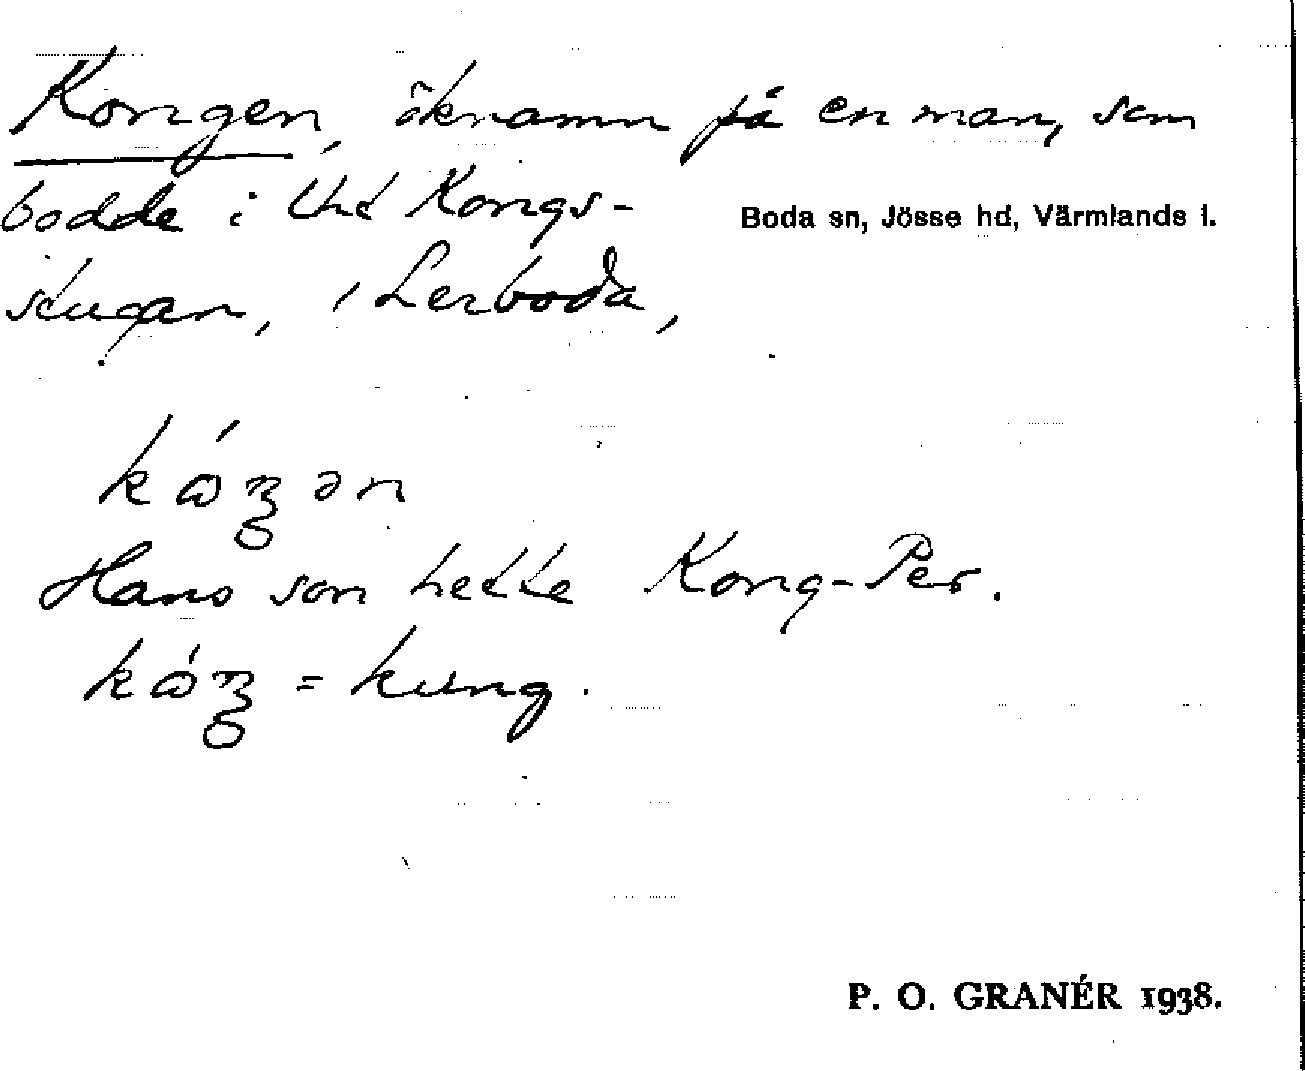 Kongen, öknamn på en man, som
bodde i lht Kongs-
Boda sn, Jösse hd, Värmlands l.
stugan, i Lerboda,
Hans son hette Kong-Per.
= kung.
P. O. GRANÉR 1938.